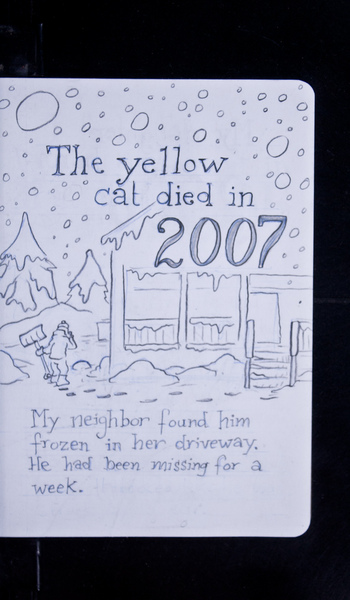 The yellow
cat died in
2007
My neighbor found him
frozen in her driveway.
He had been missing for a
week.